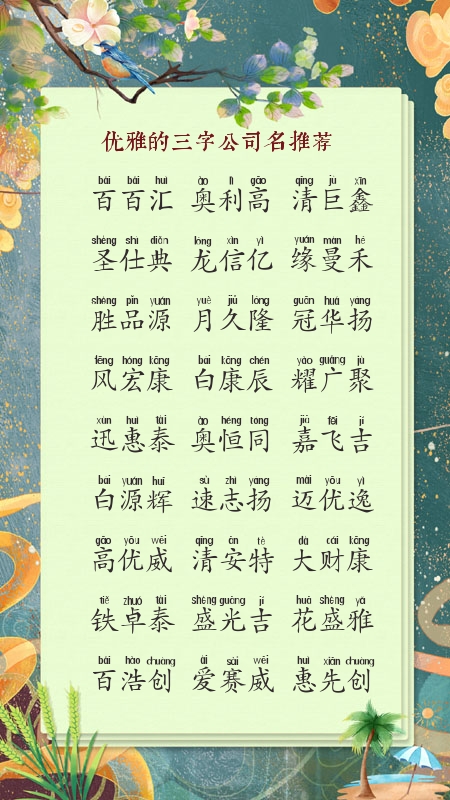 优雅的三字公司名推荐
bǎi bǎi huì ào lì gāo qīng jù xīn
百百汇 奥利高 清巨鑫
shèng shì diǎn lóng xìn yì yuán màn hé
圣仕典 龙信亿 缘曼禾
shèng pǐn yuán yuè jiǔ lóng guān huá yáng
胜品源 月久隆 冠华扬
fēng hóng kāng bái kāng chén yào guǎng jù
风宏康 白康辰 耀广聚
xùn huì tài ào héng tóng jiā fēi jí
迅惠泰 奥恒同 嘉飞吉
bái yuán huī sù zhì yáng mài yōu yì
白源辉 速志扬 迈优逸
gāo yōu wēi qīng ān tè dà cái kāng
高优威 清安特 大财康
tiě zhuó tài shèng guāng jí huā shèng yǎ
铁卓泰 盛光吉 花盛雅
bǎi hào chuàng ài sài wēi huì xiān chuàng
百浩创 爱赛威 惠先创